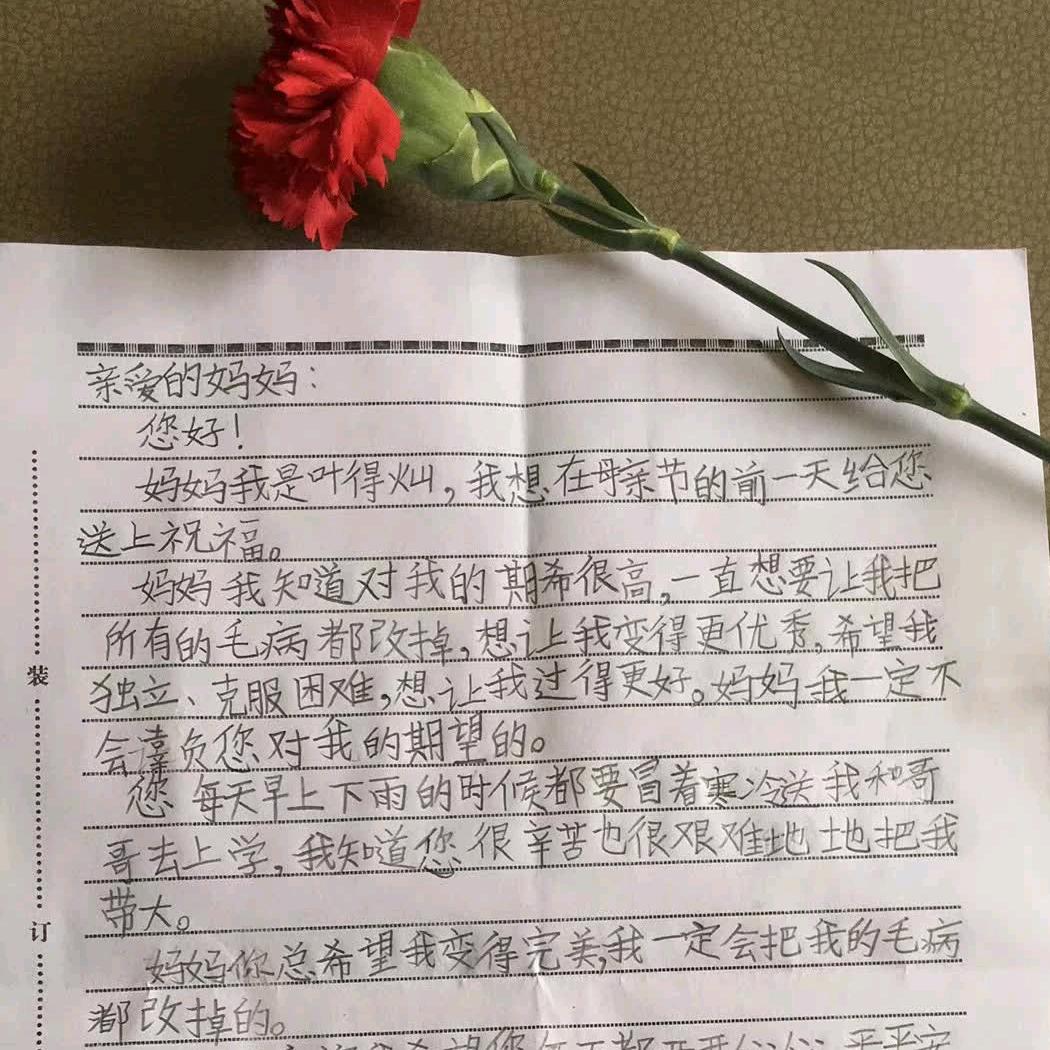 亲爱的妈妈：
您好！
妈妈我是叶得灿，我想在母亲节的前一天给您
送上祝福。
妈妈我知道对我的期希很高，一直想要让我把
所有的毛病都改掉，想让我变得更优秀，希望我
独立、克服困难，想让我过得更好。妈妈我一定不
会负您对我的期望的。
您每天早上下雨的时候都要冒着寒冷送我和哥
哥去上学，我知道您很辛苦也很艰难地地把我
带大。
妈妈你总希望我变得完美，我一定会把我的毛病
都改掉的。
希望您每天都开开心心平平安
装
订